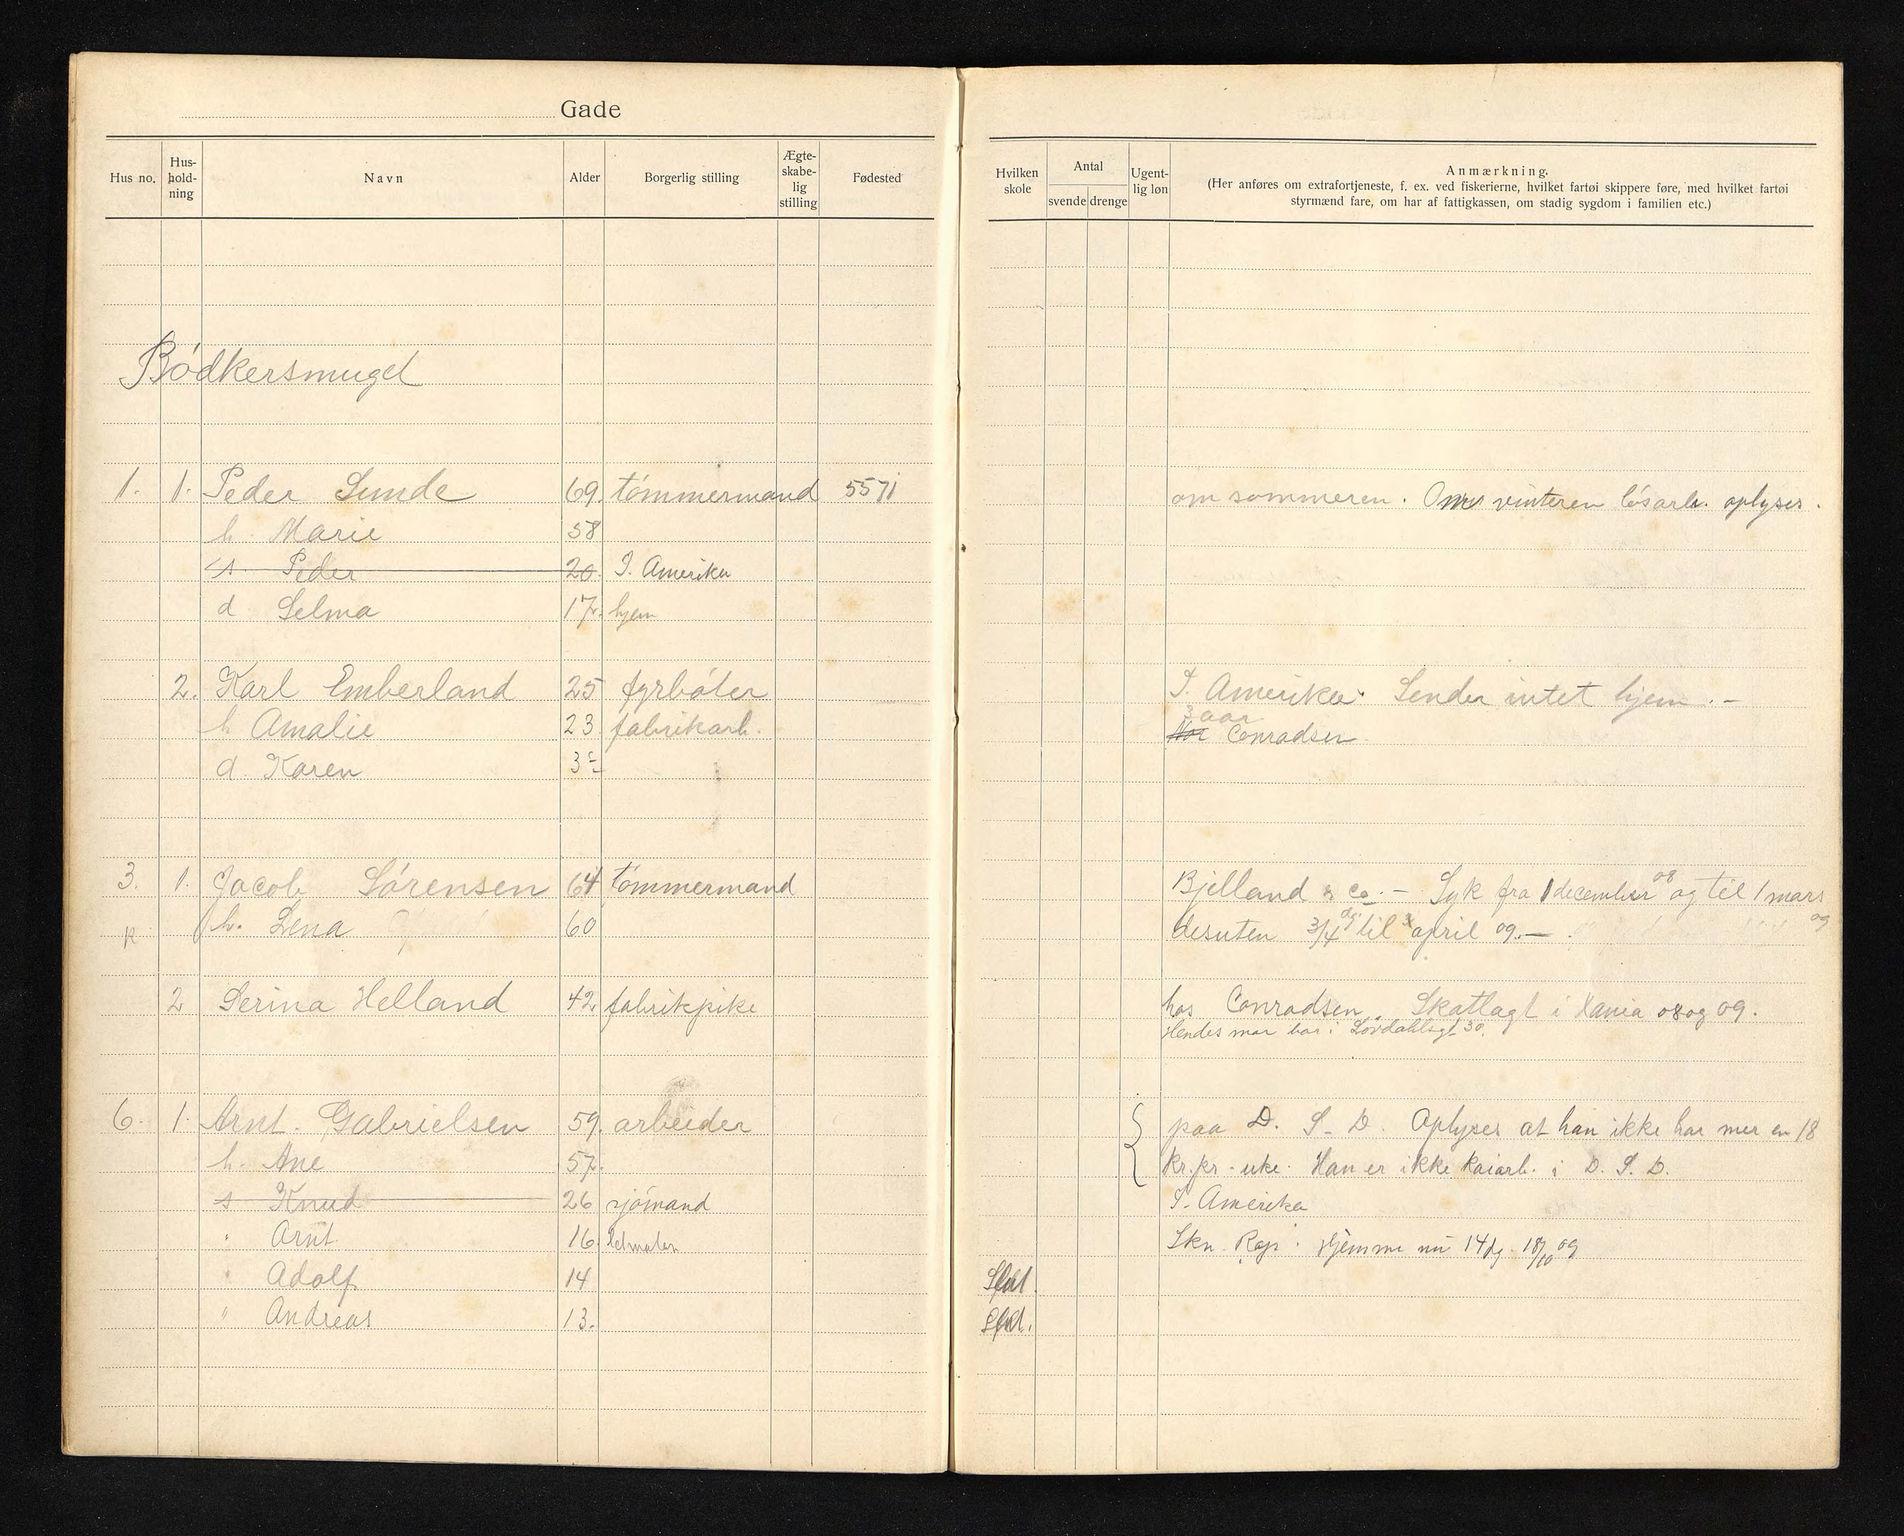 Gade
Hus no. Hus-holdning Navn Alder Borgerlig stilling Ægte-skabe-lig stilling Fødested Hvilken skole Antal svende drenge Ugent-lig løn Anmærkning.
(Her anføres om extrafortjeneste, f. ex. ved fiskerierne, hvilket fartøi skippere føre, med hvilket fartøi
styrmænd fare, om har af fattigkassen, om stadig sygdom i familien etc.)
Bødkersmuget
1. 1. Peder Sunde 69. tømmermand 5571 om sommeren. Om vinteren løsarb. oplyses.
h. Marie 58
s. Peder 20. I. Amerika
d Selma 17. hjem
2. Karl Emberland 25 fyrbøter I. Amerika. Sender intet hjem. –
3 aar
h Amalie 23. fabrikarb. Conradsen
d. Karen 3
3. 1. Jacob Sørensen 64 tømmermand Bjelland & Co. – Syk fra 1 december 08 og til 1 mars 09
h. Lena 60 desuten 3/4 til april 09. –
2 Serina Helland 42 fabrikpike hos Conradsen. Skatlagt i Xania 08 og 09.
Hendes mor bor i Løvdahlsgt 30.
6. 1. Arnt. Gabrielsen 59. arbeider paa D. S. D. Oplyses at han ikke har mer en 18
h. Ane 57. kr. pr. uke. Han er ikke kaiarb. i D. S. D.
s Knud 26 sjømand I. Amerika
" Arnt 16. Skn. Hjemme nu 14 dg. 18/10 09
" Adolf 14
" Andreas 13.